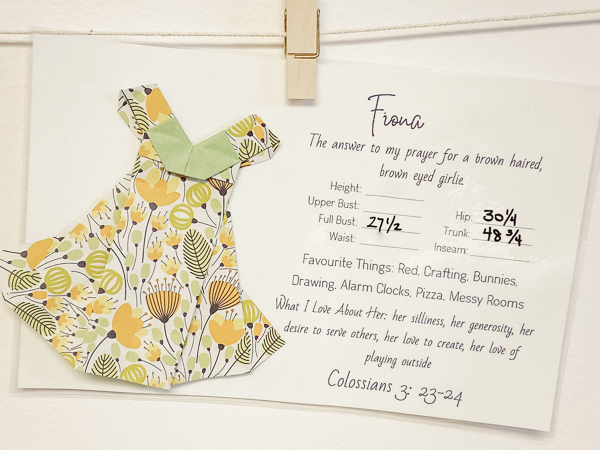 Fiona
The answer to my prayer for a brown haired,
brown eyed girlie
Height:
Upper Bust:
Full Bust: 27 1/2
Waist:
Hip: 30 1/4
Trunk: 48 3/4
Inseam:
Favourite Things: Red, Crafting, Bunnies,
Drawing, Alarm Clocks, Pizza, Messy Rooms
What I Love About Her: her silliness, her generosity, her
desire to serve others, her love to create, her love of
playing outside
Colossians 3: 23-24